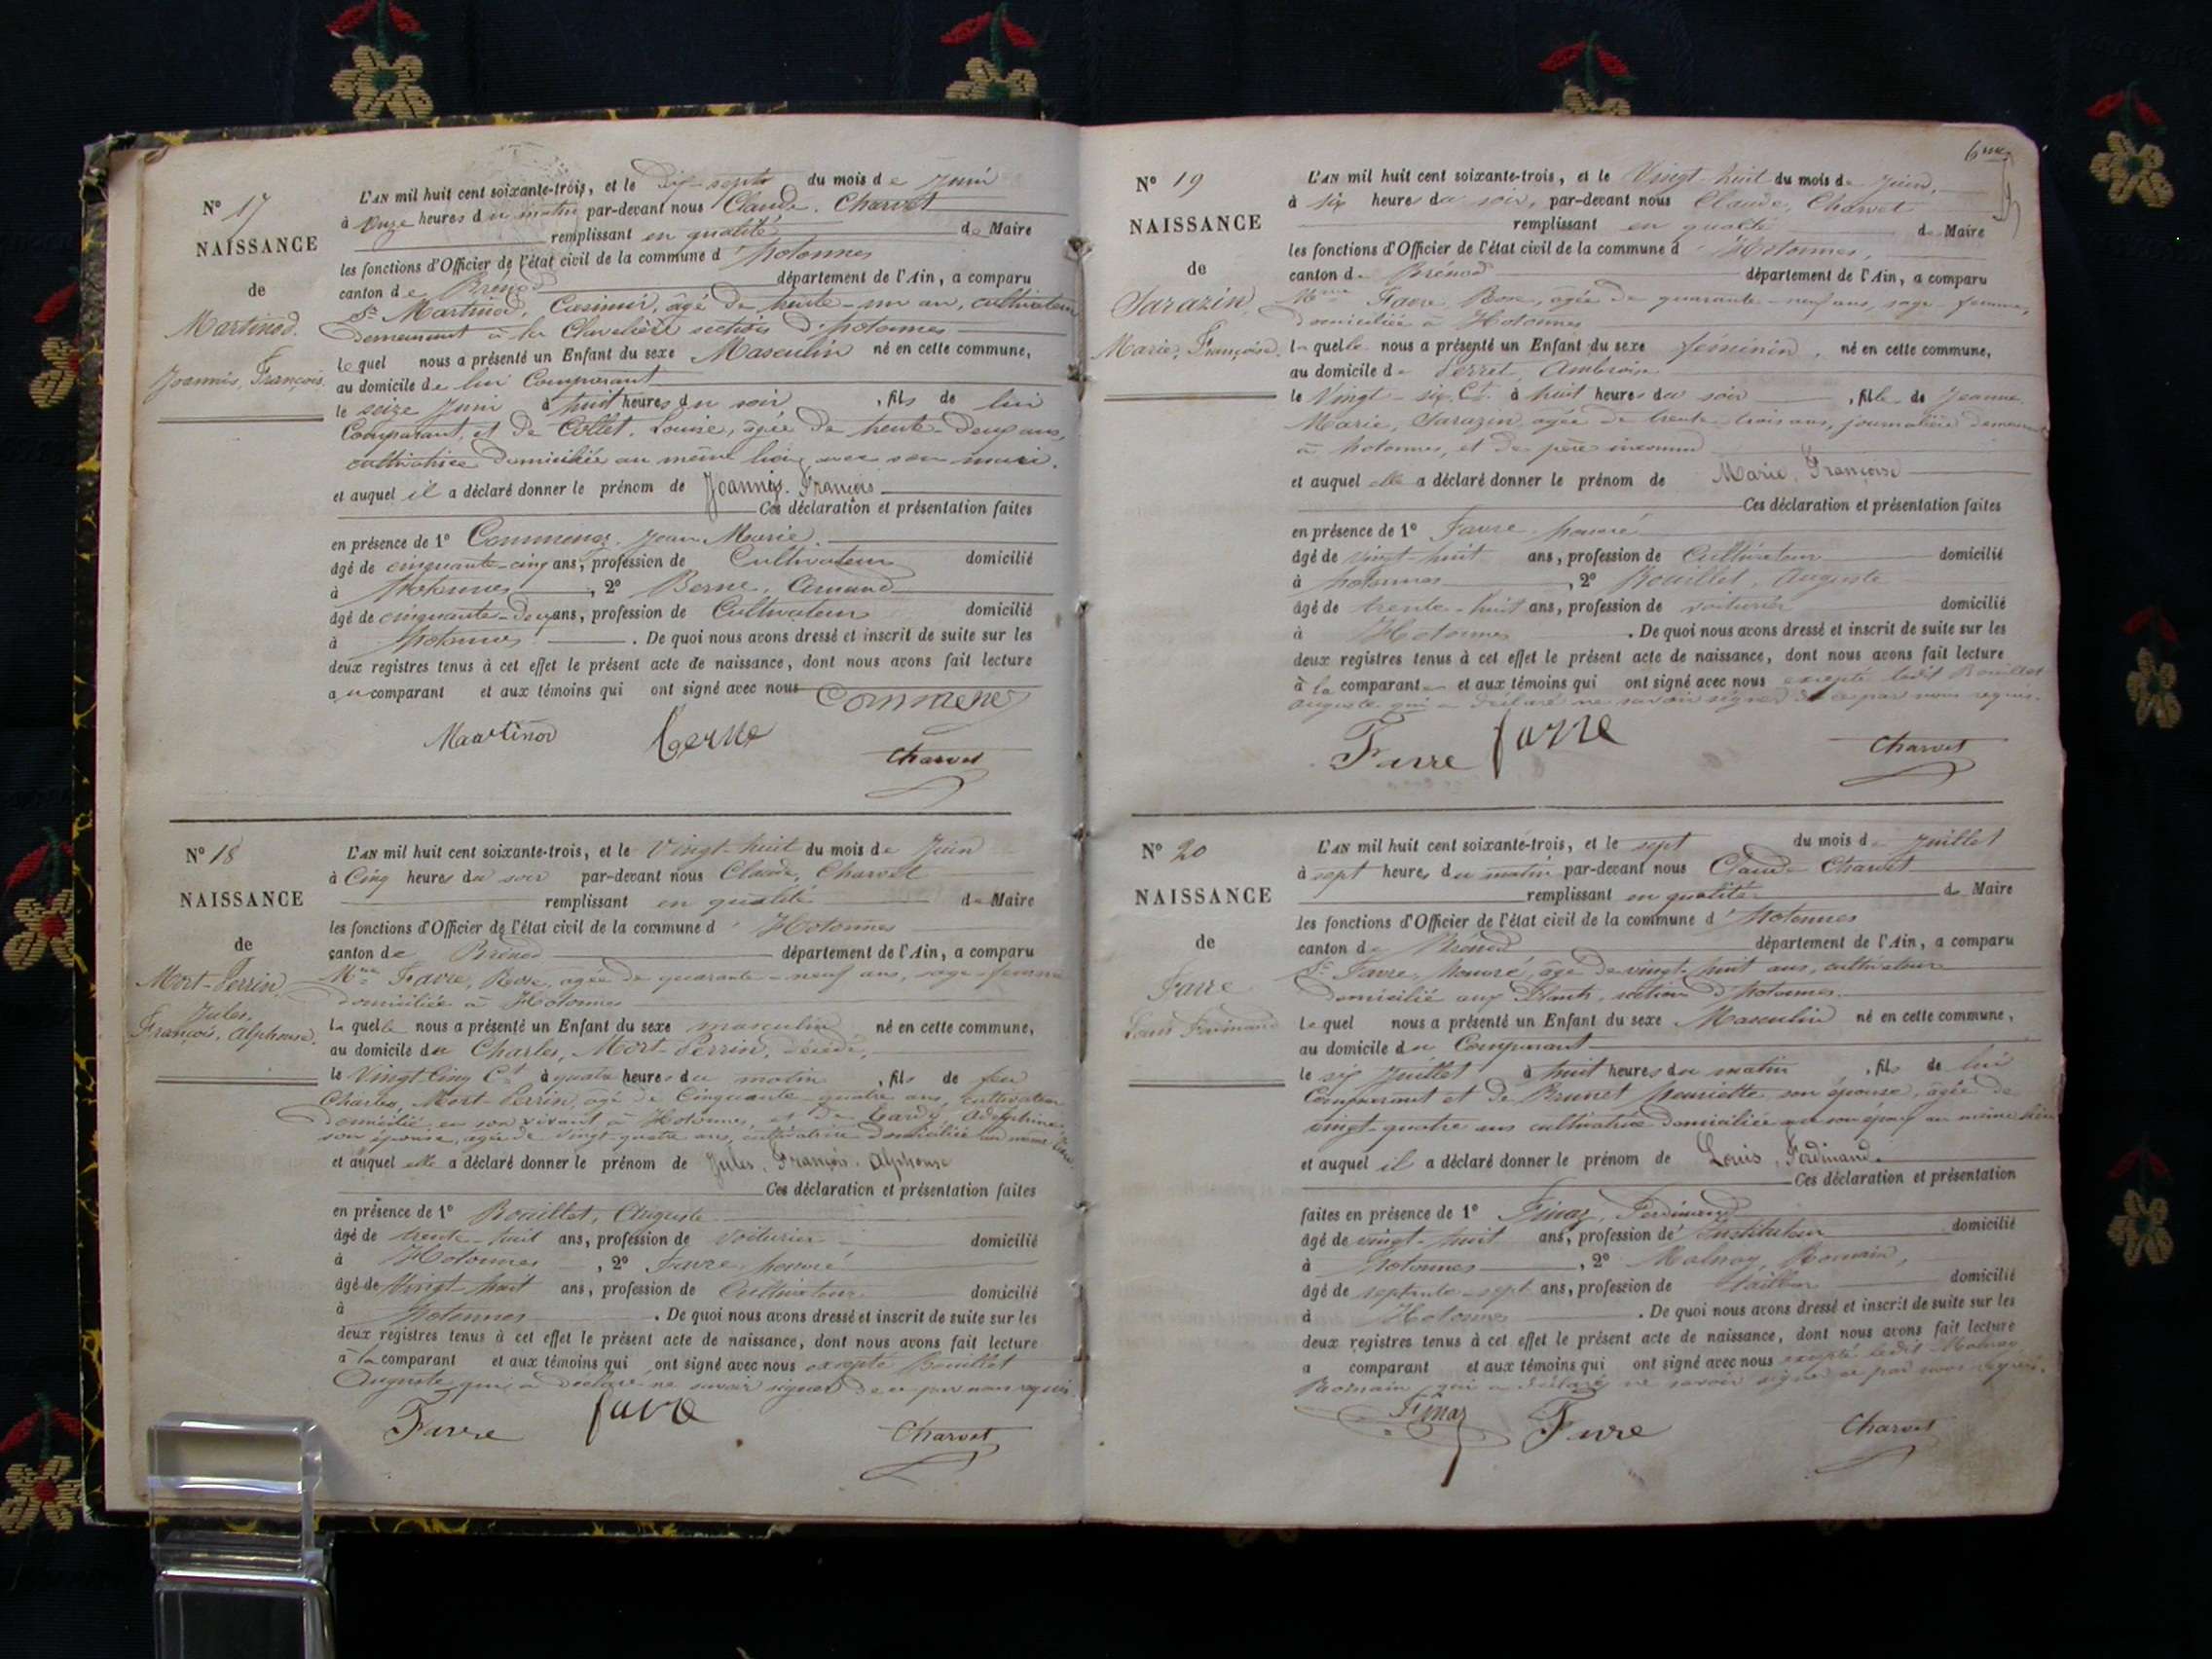 N° 17
NAISSANCE
de
Martinod.
Joannis, François.
L'AN mil huit cent soixante-trois, et le Dix-sept du mois de Juin
à Onze heures du matin par-devant nous Claude, Charvet
remplissant en qualité de Maire
les fonctions d'Officier de l'état civil de la commune d'hotonnes
canton de Brénod département de l'Ain, a comparu
Sr Martinod, Casimir, âgé de trente-un an, cultivateur
demeurant à la Clavelière section d'hotonnes
lequel nous a présenté un Enfant du sexe Masculin né en cette commune,
au domicile de lui Comparant
le seize Juin à huit heures du soir, fils de lui
Comparant, et de Collet, Louise, âgée de trente-deux ans,
cultivatrice domiciliée au même lieu avec son mari.
et auquel il a déclaré donner le prénom de Joannis. François
Ces déclaration et présentation faites
en présence de 1° Commenaz, Jean Marie.
âgé de cinquante-cinq ans, profession de Cultivateur domicilié
à hotonnes, 2° Berne, Armand
âgé de cinquante-deux ans, profession de Cultivateur domicilié
à hotonnes. De quoi nous avons dressé et inscrit de suite sur les
deux registres tenus à cet effet le présent acte de naissance, dont nous avons fait lecture
au comparant et aux témoins qui ont signé avec nous
Martinod Berne Charvet
N° 18
NAISSANCE
de
Mort-Perrin,
Jules,
François, Alphonse.
L'AN mil huit cent soixante-trois, et le Vingt-huit du mois de Juin
à Cinq heures du soir par-devant nous Claude, Charvet
remplissant en qualité de Maire
les fonctions d'Officier de l'état civil de la commune d'Hotonnes
canton de Brénod département de l'Ain, a comparu
Mme Favre, Rose, agée de quarante-neuf ans, sage-femme
domiciliée à Hotonnes
laquelle nous a présenté un Enfant du sexe masculin né en cette commune,
au domicile du Charles, Mort-Perrin, décédé,
le Vingt Cinq Ct à quatre heures du matin, fils de feu
Charles, Mort-Perrin, agé de Cinquante-quatre ans, cultivateur
domicilié en son vivant à Hotonnes, et de Adelphine
son épouse, agée de vingt-quatre ans, cultivatrice domiciliée au même lieu.
et auquel elle a déclaré donner le prénom de Jules, François. Alphonse
Ces déclaration et présentation faites
en présence de 1° Rouillet, Auguste
âgé de trente-huit ans, profession de voiturier domicilié
à Hotonnes, 2° Favre, honoré
âgé de Vingt-huit ans, profession de Cultivateur domicilié
à hotonnes. De quoi nous avons dressé et inscrit de suite sur les
deux registres tenus à cet effet le présent acte de naissance, dont nous avons fait lecture
à la comparant et aux témoins qui ont signé avec nous excepté Rouillet
Auguste qui a déclaré ne savoir signer de ce par nous requis.
Favre favre Charvet
6me
N° 19
NAISSANCE
de
Sarazin,
Marie, Françoise.
L'AN mil huit cent soixante-trois, et le Vingt-huit du mois de Juin,
à six heures du soir, par-devant nous Claude, Charvet
remplissant en qualité de Maire
les fonctions d'Officier de l'état civil de la commune d'Hotonnes,
canton de Brénod département de l'Ain, a comparu
Mme Favre Rose, agée de quarante-neuf ans, sage-femme,
domiciliée à Hotonnes
laquelle nous a présenté un Enfant du sexe féminin, né en cette commune,
au domicile de Perret, Ambroise
le Vingt-six Ct à huit heures du soir, fille de Jeanne
Marie, Sarazin, agée de trente-trois ans, journalière demeurant
à hotonnes, et de père inconnu
et auquel elle a déclaré donner le prénom de Marie, Françoise
Ces déclaration et présentation faites
en présence de 1° Favre honoré
âgé de vingt-huit ans, profession de Cultivateur domicilié
à hotonnes, 2° Rouillet, Auguste
âgé de trente-huit ans, profession de voiturier domicilié
à Hotonnes. De quoi nous avons dressé et inscrit de suite sur les
deux registres tenus à cet effet le présent acte de naissance, dont nous avons fait lecture
à la comparante et aux témoins qui ont signé avec nous excepté ledit Rouillet
Auguste qui a déclaré ne savoir signer de ce par nous requis.
Favre favre Charvet
N° 20
NAISSANCE
de
Favre
Louis Ferdinand
L'AN mil huit cent soixante-trois, et le sept du mois de Juillet
à sept heures du matin par-devant nous Claude Charvet
remplissant en qualité de Maire
les fonctions d'Officier de l'état civil de la commune d'hotonnes
canton de Brénod département de l'Ain, a comparu
Sr Favre, honoré, âgé de vingt-huit ans, cultivateur
domicilié aux Plants, section d'hotonnes.
lequel nous a présenté un Enfant du sexe Masculin né en cette commune,
au domicile du Comparant
le six Juillet à huit heures du matin, fils de lui
Comparant et de Brunet henriette, son épouse, agée de
vingt-quatre ans cultivatrice domiciliée avec son époux au même lieu
et auquel il a déclaré donner le prénom de Louis, Ferdinand.
Ces déclaration et présentation
faites en présence de 1° Finaz, Ferdinand
âgé de vingt-huit ans, profession de Instituteur domicilié
à hotonnes, 2° Malnoy, Romain,
âgé de septante-sept ans, profession de tailleur domicilié
à Hotonnes. De quoi nous avons dressé et inscrit de suite sur les
deux registres tenus à cet effet le présent acte de naissance, dont nous avons fait lecture
a comparant et aux témoins qui ont signé avec nous excepté ledit Malnoy
Romain qui a déclaré ne savoir signer ce par nous requis.
Finaz Favre Charvet